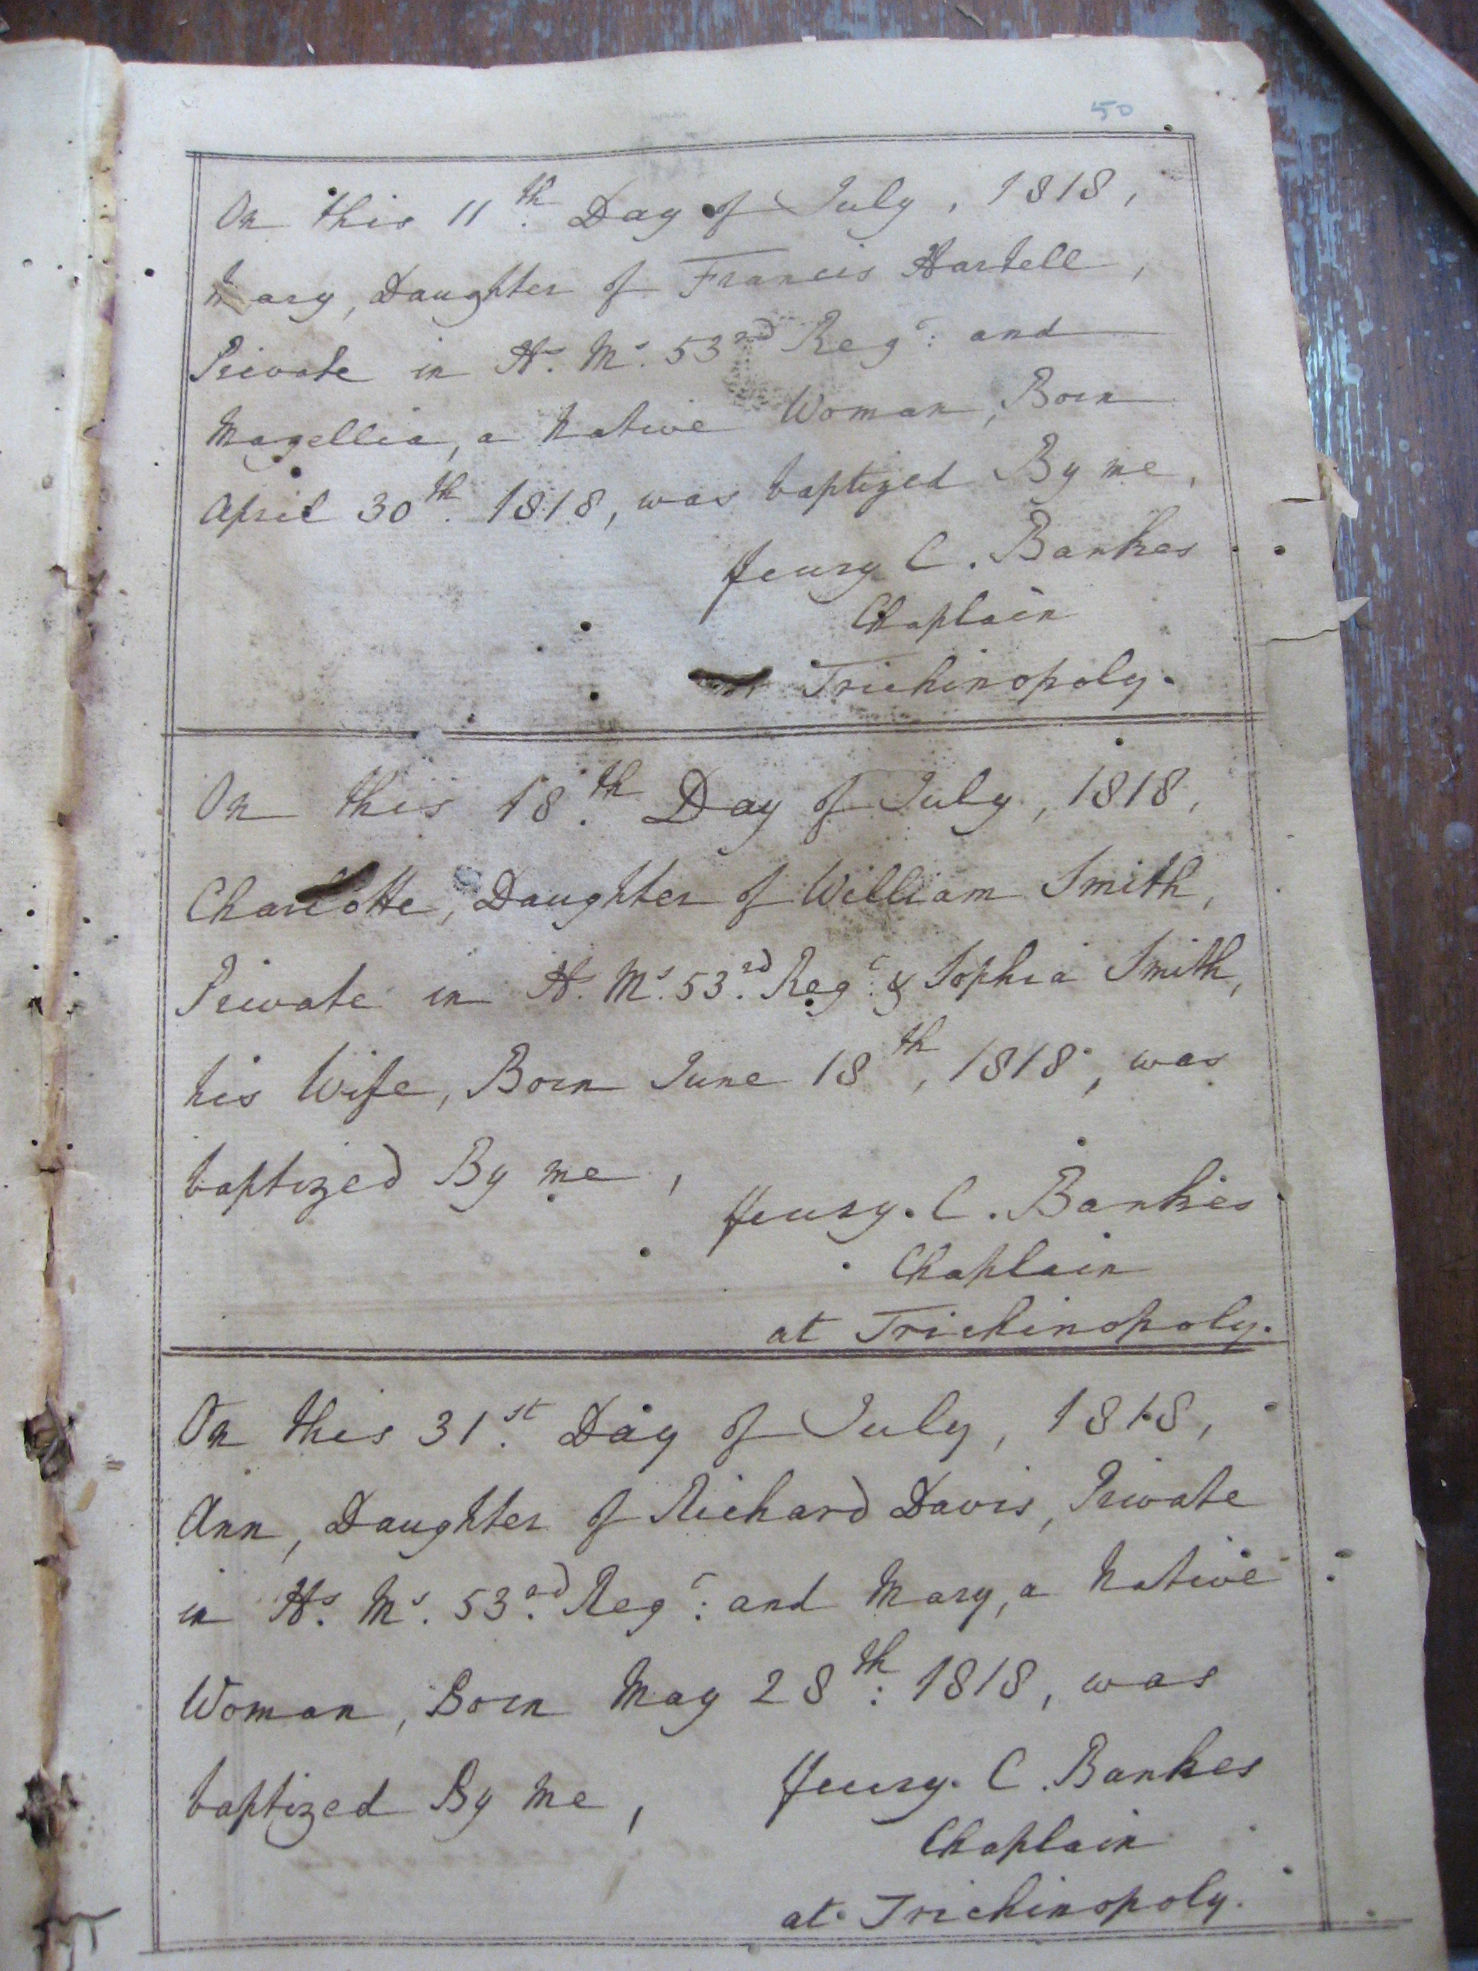 50
On this 11th. Day of July, 1818,
Mary, Daughter of Francis Hartell,
Private in H.s M.s 53rd Regt: and
Magellia, a Native Woman, Born
April 30th. 1818, was baptized By me,
Henry C. Bankes
Chaplain
Trichinopoly.
On this 18th. Day of July, 1818,
Charlotte, Daughter of William Smith,
Private in H. Ms. 53rd. Regt: & Sophia Smith,
his Wife, Born June 18th, 1818, was
baptized By me,
Henry. C. Bankes
Chaplain
at Trichinopoly.
On this 31st. Day of July, 1818,
Ann, Daughter of Richard Davis, Private
in Hs. Ms. 53rd. Regt: and Mary, a Native
Woman, Born May 28th: 1818, was
baptized By me,
Henry. C. Bankes
Chaplain
at Trichinopoly.